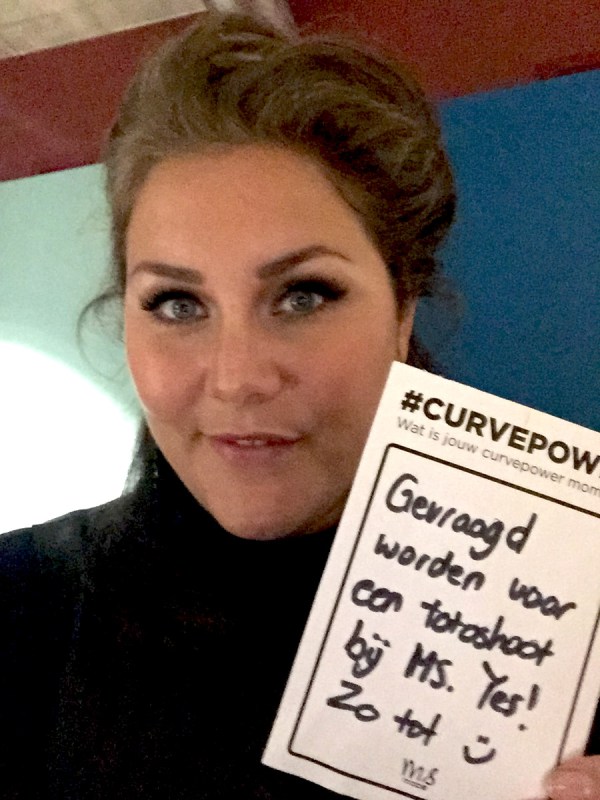 #CURVEPOW
Wat is jouw curvepower mom
Gevraagd
worden voor
een fotoshoot
bij MS. Yes!
Zo tof
ms